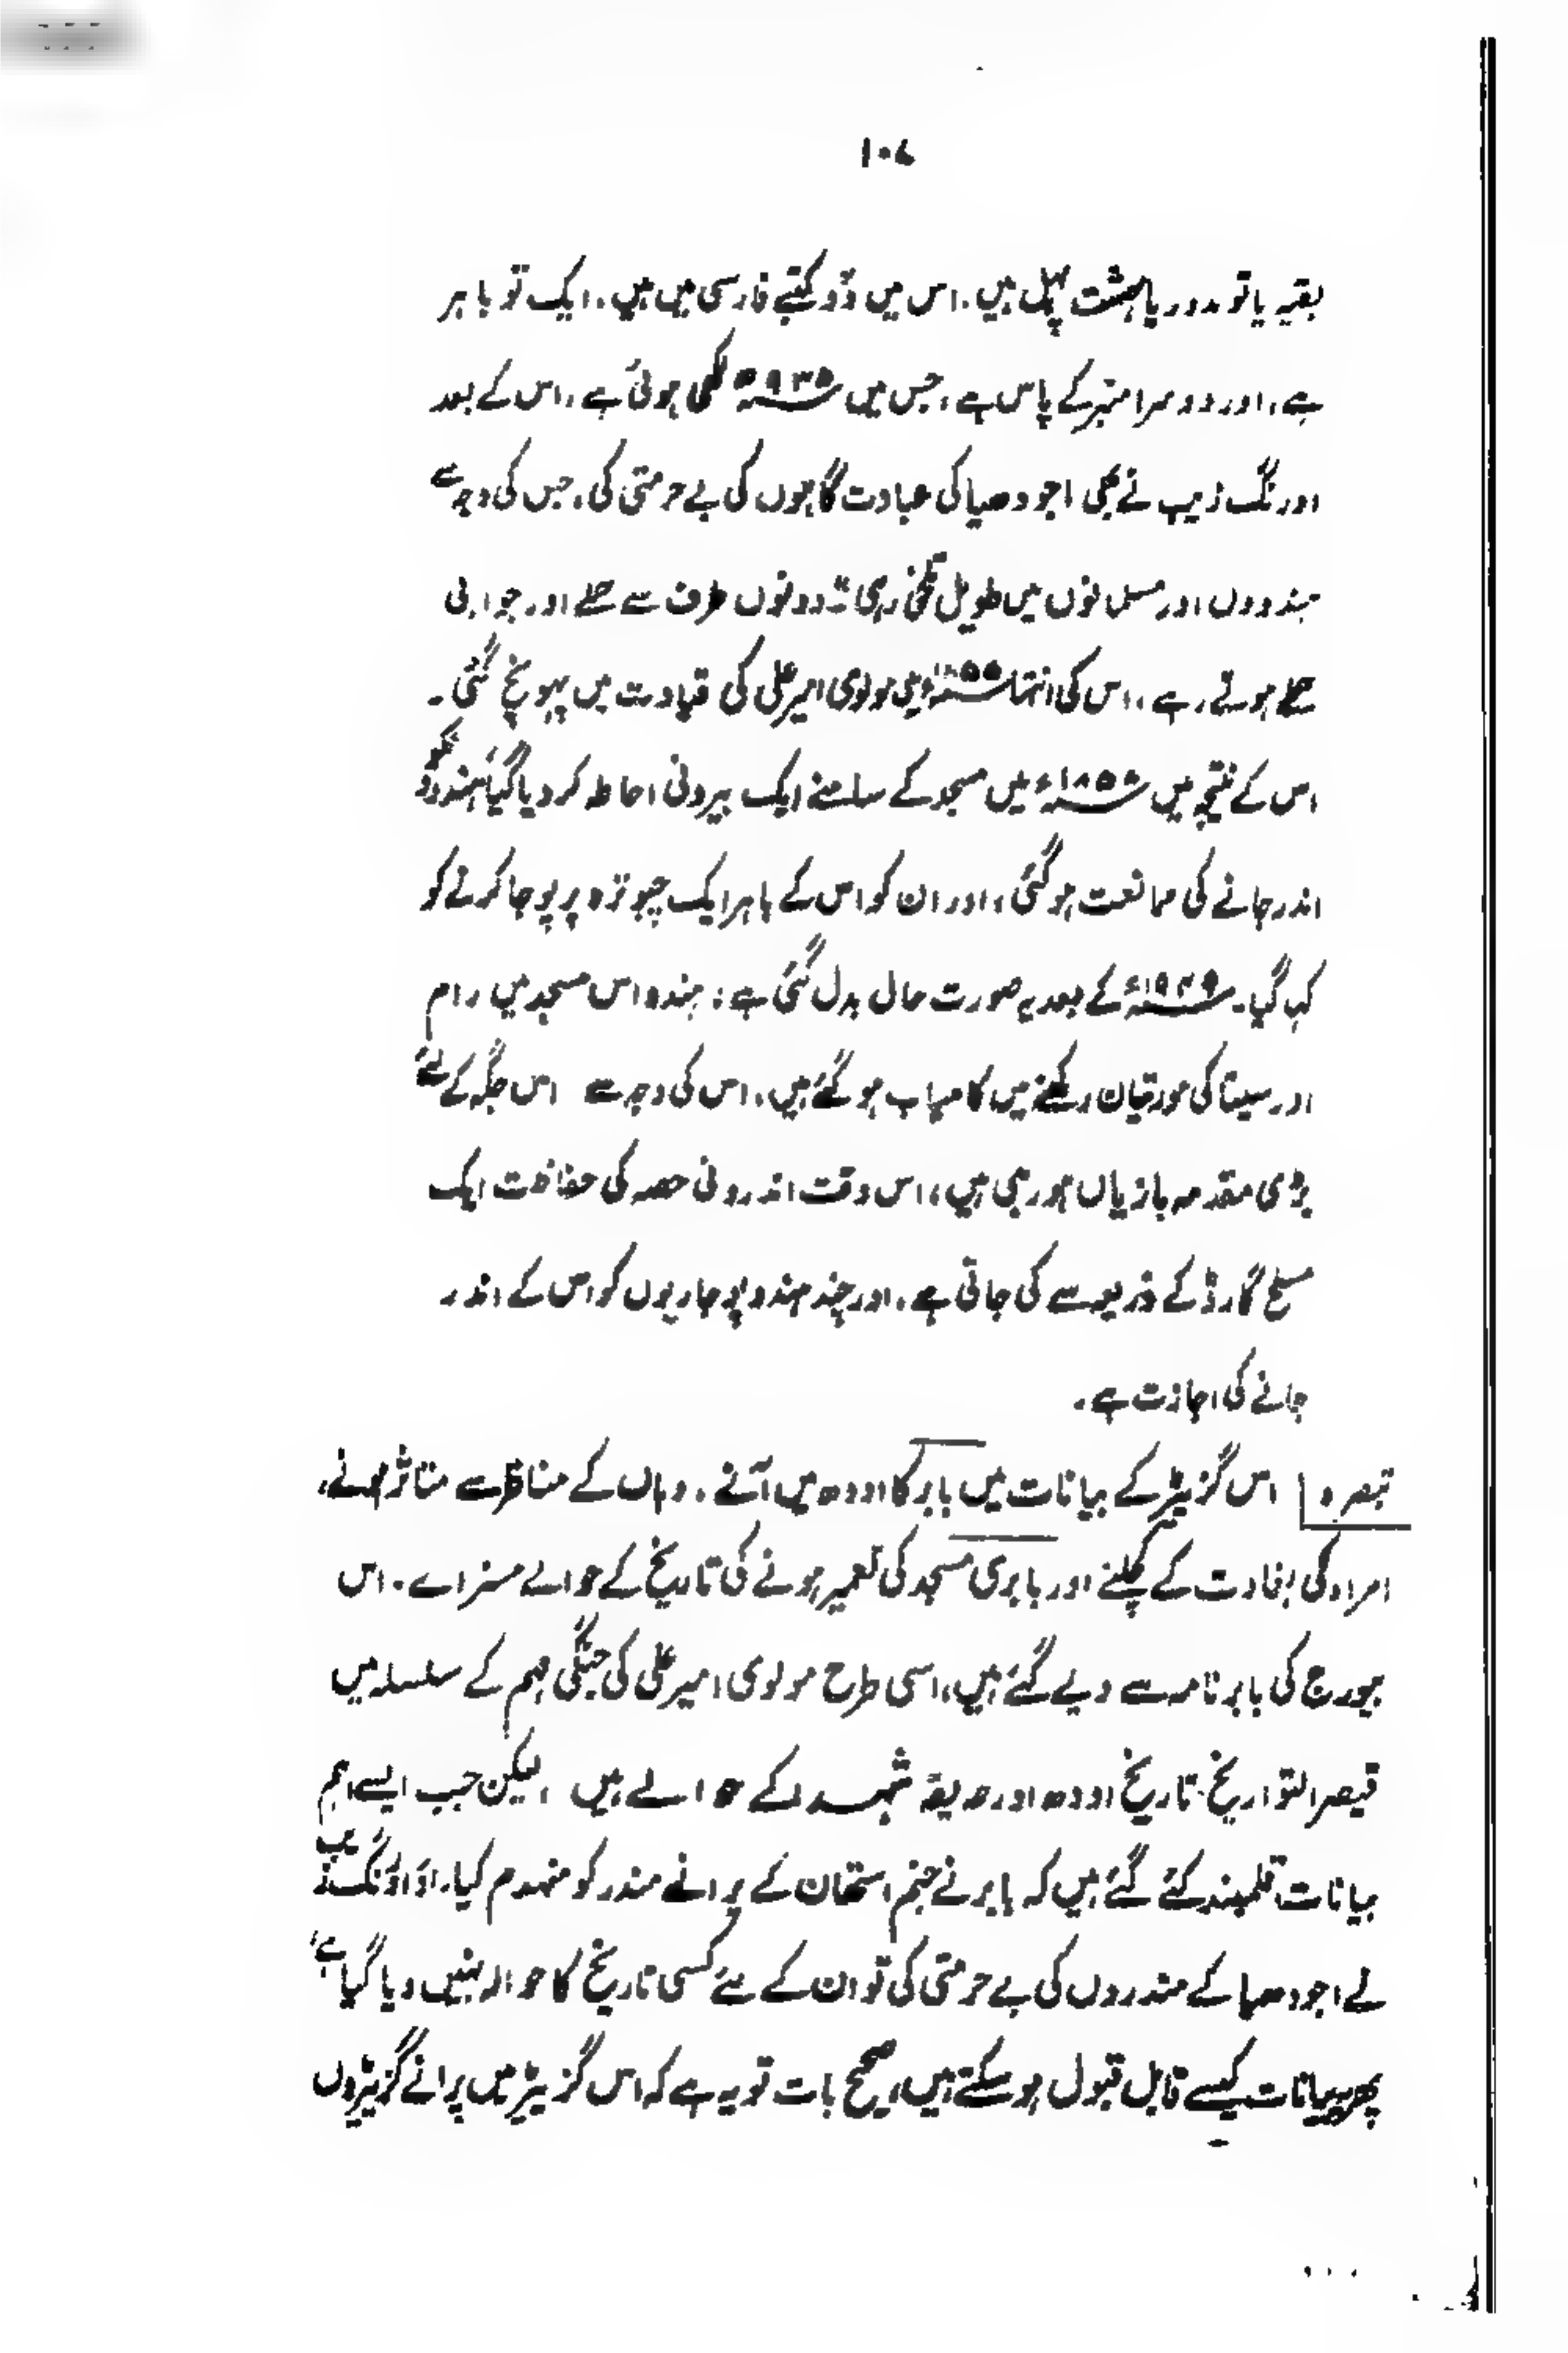 ۱۰۷
بقیہ یا تو مدور یا ہشت پہل ہیں۔ اس میں دو کتبے فارسی میں ہیں۔ ایک تو باہر
ہے، اور دوسرا منبر کے پاس ہے، جس میں ۹۳۵ھ لکھی ہوئی ہے، اس کے بعد
اورنگ زیب نے بھی اجودھیا کی عبادت گاہوں کی بے حرمتی کی، جس کی وجہ سے
ہندووں اور مسلمانوں میں طویل تلخی رہی، دونوں طرف سے حملے اور جوابی
حملے ہوتے رہے، اس کی انتہا ۱۸۵۵ء میں مولوی امیر علی کی قیادت میں پہونچ گئی۔
اس کے نتیجہ میں ۱۸۵۵ء میں مسجد کے سامنے ایک بیرونی احاطہ کر دیا گیا، ہندووں کو
اندر جانے کی ممانعت ہو گئی، اور ان کو اس کے باہر ایک چبوترہ پر پوجا کرنے کو
کہا گیا۔ ۱۹۴۹ء کے بعد یہ صورت حال بدل گئی ہے: ہندو اس مسجد میں رام
اور سیتا کی مورتیان رکھنے میں کامیاب ہو گئے ہیں، اس کی وجہ سے اس جگہ کے لئے
بڑی مقدمہ بازیاں ہو رہی ہیں، اس وقت اندرونی حصہ کی حفاظت ایک
مسلح گارڈ کے ذریعہ سے کی جاتی ہے، اور چند ہندو پوجاریوں کو اس کے اندر
جانے کی اجازت ہے۔
تبصرہ اس گزیٹیر کے بیانات میں بابر کا اودھ میں آنے، وہاں کے مناظر سے متاثر ہونے،
امراء کی بغاوت کے کچلنے اور بابری مسجد کی تعمیر ہونے کی تاریخ کے حوالے مسز اے۔ اس
بیورج کی بابر نامہ سے دیے گئے ہیں، اسی طرح مولوی امیر علی کی جنگی مہم کے سلسلہ میں
قیصر التواریخ، تاریخ اودھ اور حدیقۂ شہداء کے حوالے ہیں، لیکن جب ایسے اہم
بیانات قلمبند کئے گئے ہیں کہ بابر نے جنم استھان کے پرانے مندر کو منہدم کیا، اور اورنگ زیب
نے اجودھیا کے مندروں کی بے حرمتی کی تو ان کے لئے کسی تاریخ کا حوالہ نہیں دیا گیا ہے،
پھر یہ بیانات کیسے قابل قبول ہو سکتے ہیں، صحیح بات تو یہ ہے کہ اس گزیٹیر میں پرانے گزیٹیروں